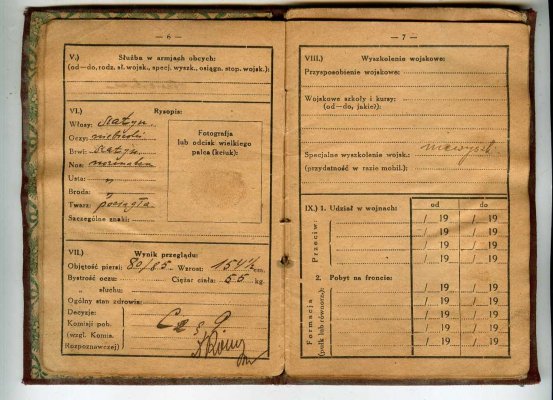 — 6 —
V.) Służba w armjach obcych:
(od—do, rodz. sł. wojsk., specj. wyszk., osiągn. stop. wojsk.):
VI.) Rysopis:
Włosy:
Oczy: niebieski
Brwi:
Nos: normalen
Usta: „
Broda:
Twarz:
Szczególne znaki:
Fotografja
lub odcisk wielkiego
palca (kciuk):
VII.) Wynik przeglądu:
Objętość piersi: 80/85 Wzrost: 154½ cm.
Bystrość oczu: Ciężar ciała: 55 kg.
„ słuchu:
Ogólny stan zdrowia:
Decyzje:
Komisji pob.
(wzgl. Komis.
Rozpoznawczej)
C
— 7 —
VIII.) Wyszkolenie wojskowe:
Przysposobienie wojskowe:
Wojskowe szkoły i kursy:
(od—do, jakie?):
Specjalne wyszkolenie wojsk.: niewyszk.
(przydatność w razie mobil.):
IX.) 1. Udział w wojnach: od do
Przeciw:
/ 19 / 19
/ 19 / 19
/ 19 / 19
/ 19 / 19
2. Pobyt na froncie:
Formacja
(pułk lub równorz.):
/ 19 / 19
/ 19 / 19
/ 19 / 19
/ 19 / 19
/ 19 / 19
/ 19 / 19